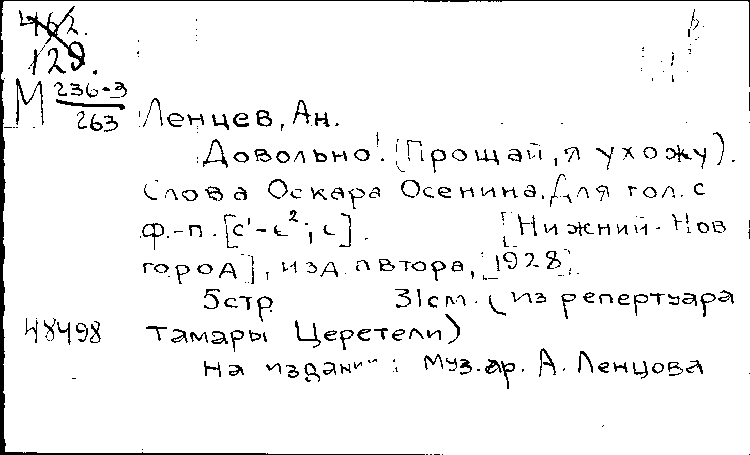 462.
128.
М 236-3
263
Ленцев, Ан.
Довольно! (Прощай, я ухожу).
Слова Оскара Осенина. Для гол. с
ф.-п. [c'-c²; c]. [Нижний-Нов
город], изд. автора, [1928].
5 стр 31 см. (из репертуара
48498 Тамары Церетели)
На издании: Муз. ар. А. Ленцова